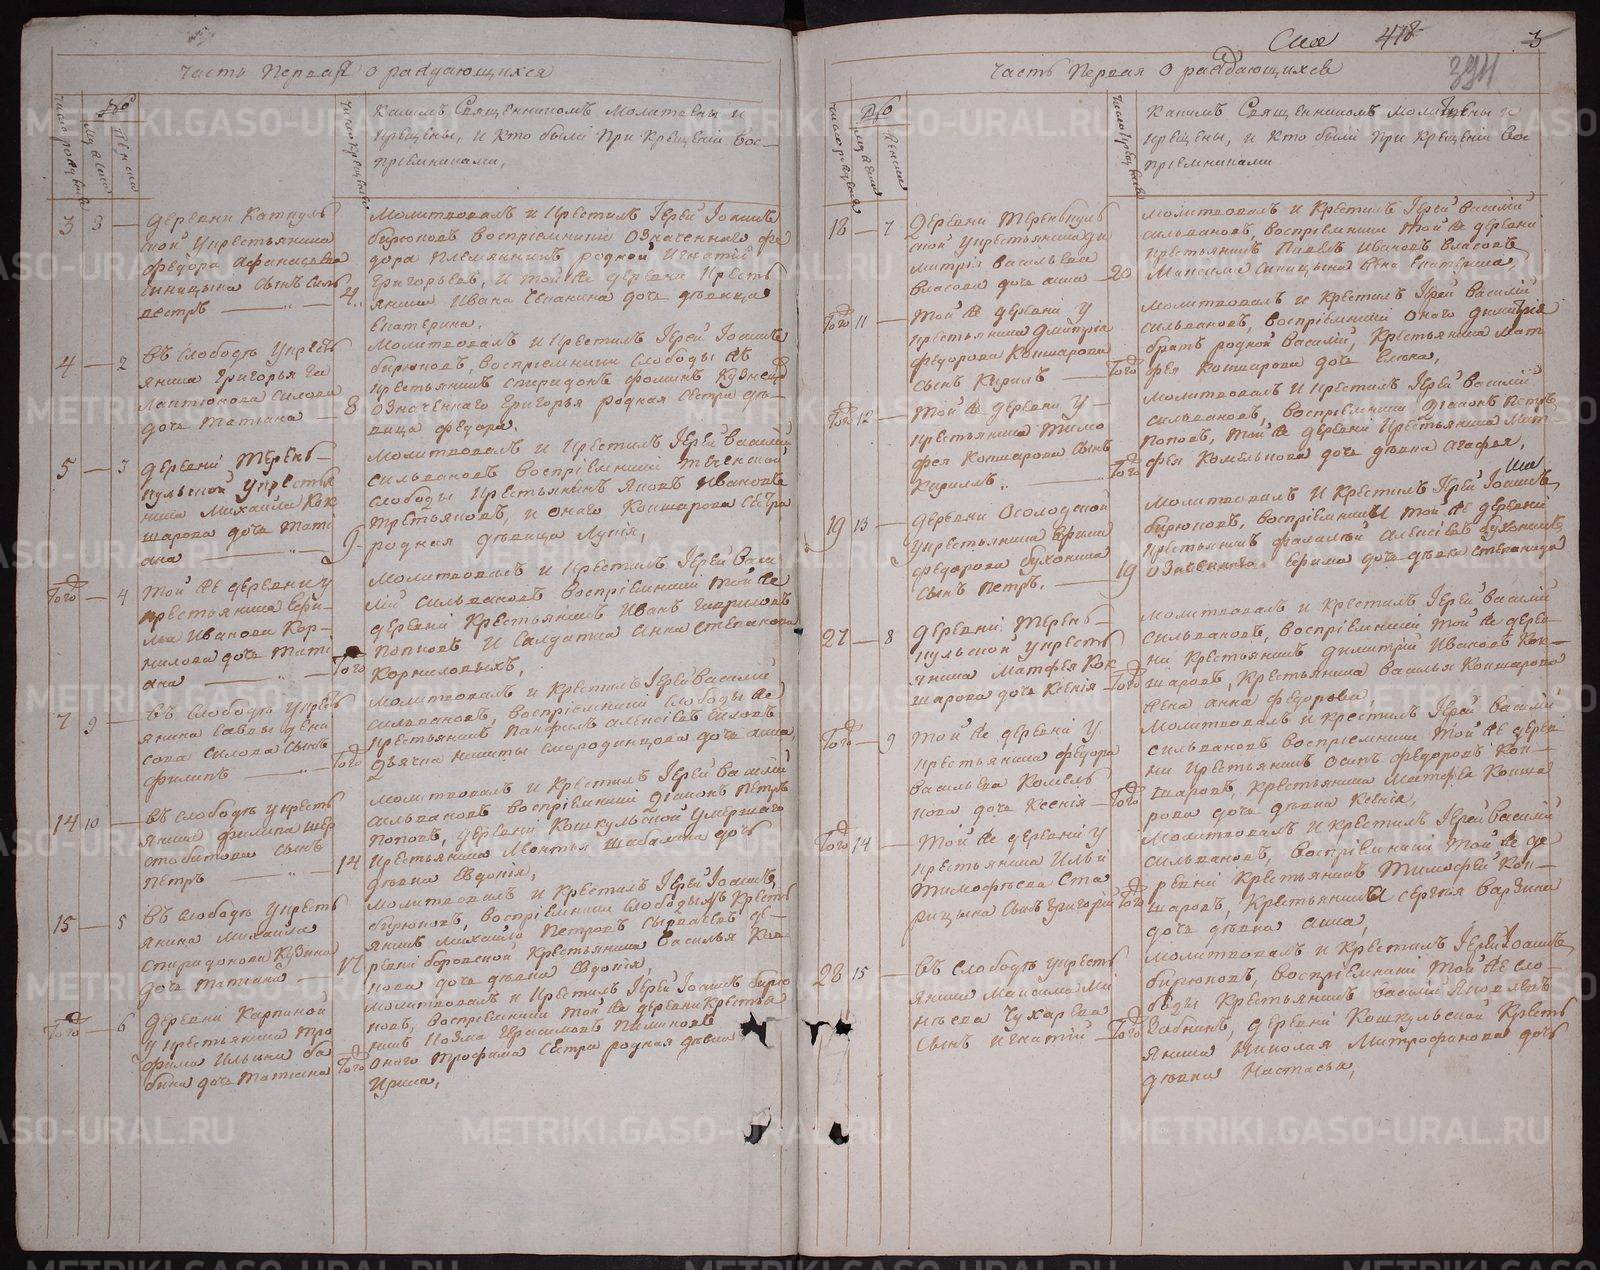 Часть Первая о раждающихся
Число рождения
№
Мужеска
Женска
Число крещения
Какимъ Священникомъ Молитвены и
Крещены, и Кто были при крещении вос-
приемниками,
3 3
деревни
ской у крестьянина
Федора Афанасьева
Синицына сынъ Силь
вестръ
4
молитвовалъ и крестилъ Иерей Иоаннъ
бирюковъ восприемники означеннаго фе
дора племянникъ родной Игнатий
Григорьевъ, и той же деревни кресть
янина Ивана дочь девица
Екатерина,
4 2
въ слободе у кресть
янина Григорья
Силова
дочь Татиана
8
молитвовалъ и крестилъ Иерей Иоаннъ
бирюковъ, восприемники слободы же
крестьянинъ Спиридонъ Фоминъ
означеннаго Григорья родная сестра де-
вица Федора.
5 3
деревни Терень-
кульской у кресть
янина Михаила Кок
шарова дочь Тати
ана
9
молитвовалъ и крестилъ Иерей Василий
Сильвановъ восприемники Теченской
слободы крестьянинъ Яковъ Ивановъ
Третьяковъ, и онаго Кокшарова сестра
родная девица
Того 4
той же деревни у
крестьянина Ефи-
ма Иванова Кор-
нилова дочь Тати
ана
Того
молитвовалъ и крестилъ Иерей Васи
лий Сильвановъ восприемники той же
деревни крестьянинъ Иванъ Гавриловъ
Поповъ и Салдатка Анна Степанова
Корниловыхъ,
7 9
въ слободе у кресть
янина Саввы
Силова сынъ
Филипъ
Того
молитвовалъ и крестилъ Иерей Василий
Сильвановъ, восприемники слободы же
крестьянинъ Панфилъ Алексеевъ Силовъ
Дьячка Никиты Смородинцова дочь Анна,
14 10
въ слободе у кресть
янина Филипа Шер
стобитова сынъ
Петръ
14
молитвовалъ и крестилъ Иерей Василий
Сильвановъ восприемники Диаконъ Петръ
Поповъ, деревни Кошкульской умершаго
крестьянина Леонтья Шабалина дочь
девка Евдокия,
15 5
въ слободе у кресть
янина Михаила
Спиридонова Кузина
дочь Татиана
17
молитвовалъ и крестилъ Иерей Иоаннъ
бирюковъ, восприемники слободы кресть
янинъ Михайло Петровъ де-
ревни боровской крестьянина Василья
дочь девка Евдокия,
Того 6
Деревни Карпиной
у крестьянина Тро
фима Ильина ба
бина дочь Татиана
Того
молитвовалъ и крестилъ Иерей Иоаннъ бирю
ковъ, восприемники той же деревни крестья
нинъ Козма Герасимовъ Пименовъ
онаго Трофима сестра родная девка
Ирина,
418
3
391
Часть Первая о раждающихся
Число рождения
№
Мужеска
Женска
Число крещения
Какимъ Священникомъ Молитвены и
крещены, и Кто были при крещении вос
приемниками
18 7
Деревни Теренькуль
ской у крестьянина Ди
митрия Васильева
Власова дочь Анна
20
молитвовалъ и крестилъ Иерей Василий
Сильвановъ, восприемники той же деревни
крестьянинъ Павелъ Ивановъ Власовъ
Максима Синицына жена Екатерина,
Того 11
той же деревни у
крестьянина Дмитрия
Федорова Кокшарова
сынъ Кирилъ
Того
молитвовалъ и крестилъ Иерей Василий
Сильвановъ, восприемники онаго Димитрия
братъ родной Василий, крестьянина Мат
фея Кокшарова дочь
Того 12
той же деревни у
крестьянина Тимо
фея Кокшарова сынъ
Кириллъ.
Того
молитвовалъ и крестилъ Иерей Василий
Сильвановъ, восприемники Диаконъ Петръ
Поповъ, той же деревни крестьянина Мат
фея дочь девка Агафья,
19 13
деревни Осолодкой
у крестьянина Ефима
Федорова Сухонина
сынъ Петръ.
19
молитвовалъ и крестилъ Иерей Иоаннъ
бирюковъ, восприемники той же деревни
крестьянинъ Алексеевъ Сухонинъ,
означеннаго Ефима дочь девка Степанида
27 8
деревни Терень-
кульской у кресть
янина Матфея Кок
шарова дочь Ксения
Того
молитвовалъ и крестилъ Иерей Василий
Сильвановъ, восприемники той же дерев
ни крестьянинъ Димитрий Ивановъ Кок-
шаровъ, крестьянина Василья Кокшарова
жена Анна Федорова
Того 9
той же деревни у
крестьянина Федора
Васильева
дочь Ксения
Того
молитвовалъ и крестилъ Иерей Василий
Сильвановъ восприемники той же дерев
ни крестьянинъ Осипъ Федоровъ Кок-
шаровъ, крестьянина Матфея Кокша
рова дочь девка Ксения,
Того 14
той же деревни у
крестьянина Ильи
Тимофеева Ста
рицына сынъ Григорий
Того
молитвовалъ и крестилъ Иерей Василий
Сильвановъ, восприемники той же де
ревни крестьянинъ Тимофей Кок-
шаровъ, крестьянина Сергея
дочь девка Анна,
28 15
въ слободе у кресть
янина Максима Ми
неева Чухарева
сынъ Игнатий
Того
молитвовалъ и крестилъ Иерей Иоаннъ
бирюковъ, восприемники той же сло
боды крестьянинъ Василий Яковлевъ
Забкинъ, деревни Кошкульской кресть
янина Николая Митрофанова дочь
девка Настасья,
METRIKI.GASO-URAL.RU